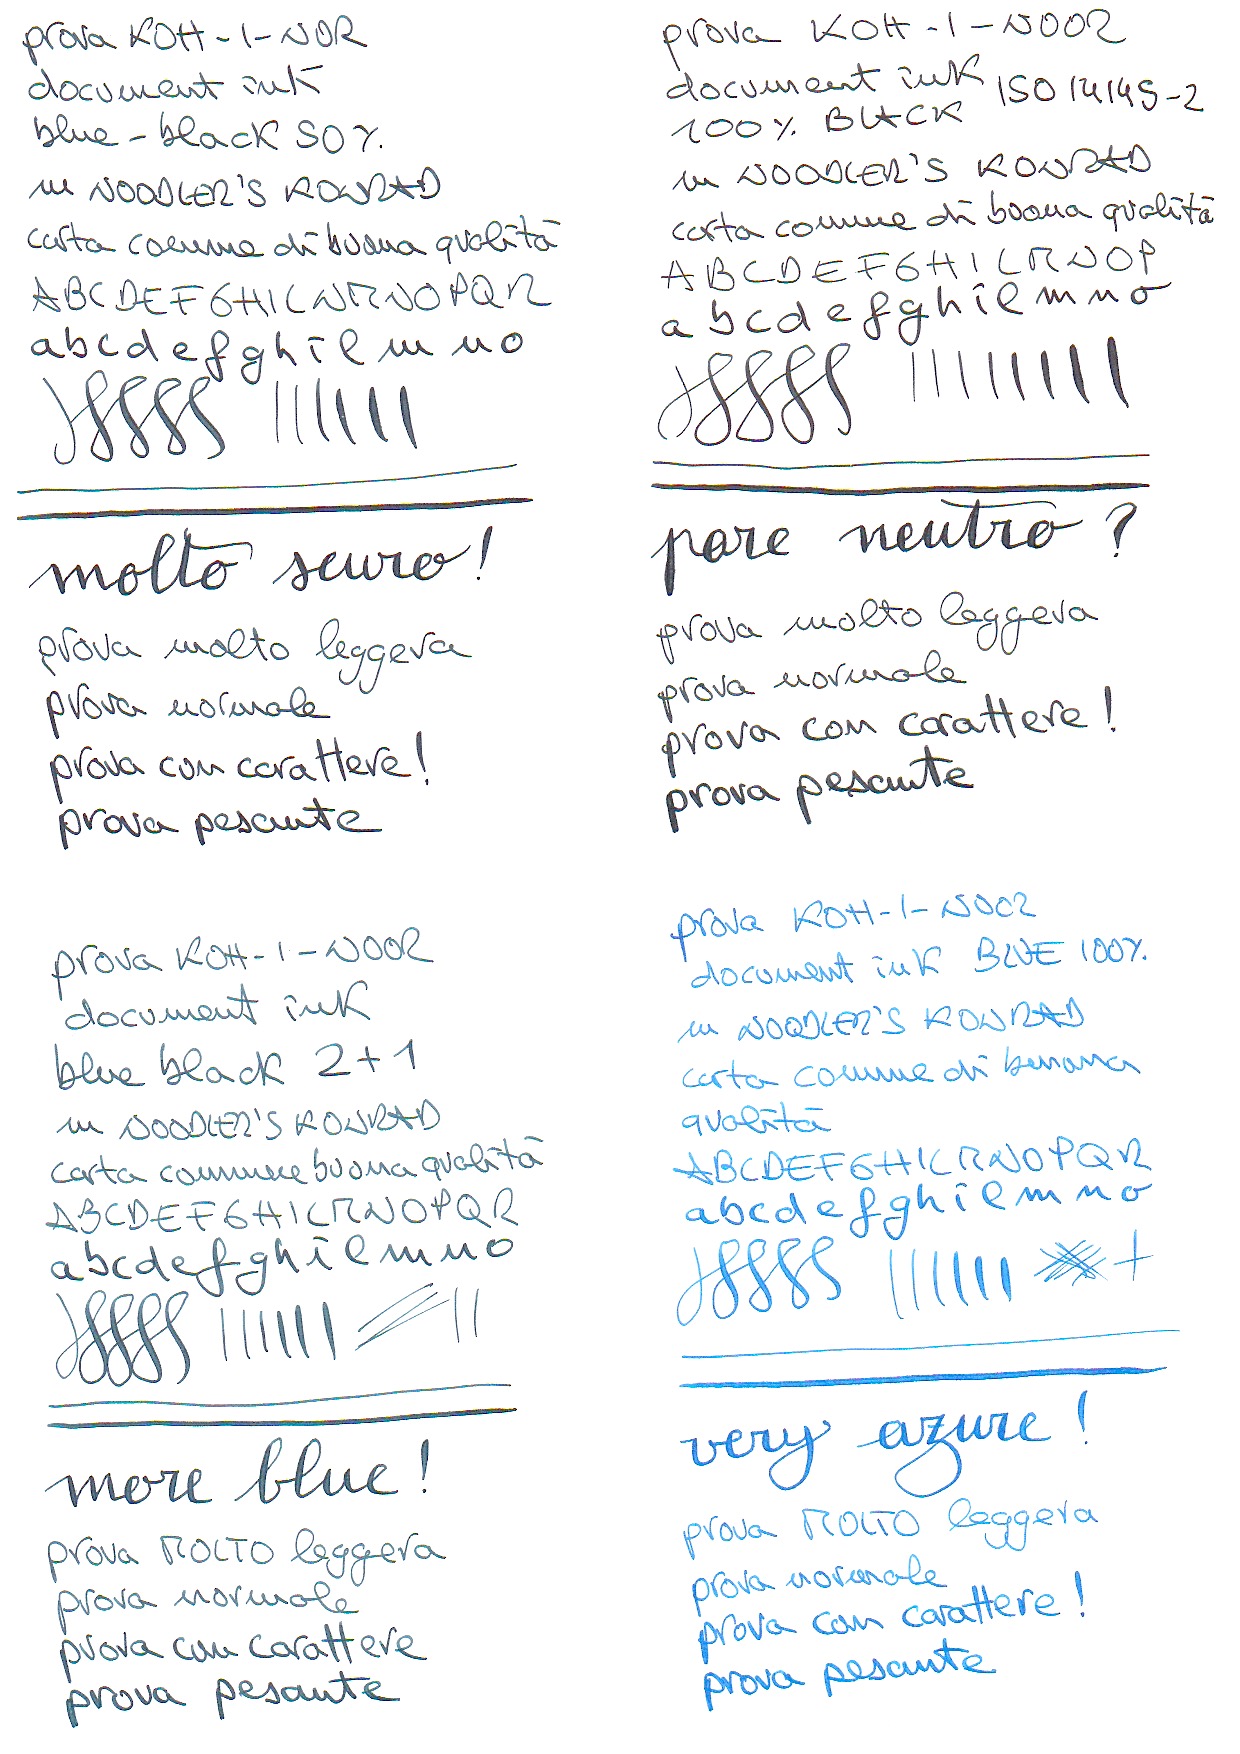 prova KOH-I-NOR
document ink
blue-black 50%
in NOODLER'S KONRAD
carta comune di buona qualità
ABCDEFGHILMNOPQR
abcdefghilmno
molto scuro!
prova molto leggera
prova normale
prova con carattere!
prova pesante
prova KOH-I-NOOR
document ink ISO 14145-2
100% BLACK
in NOODLER'S KONRAD
carta comune di buona qualità
ABCDEFGHILMNOP
abcdefghilmno
pare neutro?
prova molto leggera
prova normale
prova con carattere!
prova pesante
prova KOH-I-NOOR
document ink
blue black 2+1
in NOODLER'S KONRAD
carta comune buona qualità
ABCDEFGHILMNOPQR
abcdefghilmno
more blue!
prova MOLTO leggera
prova normale
prova con carattere
prova pesante
prova KOH-I-NOOR
document ink BLUE 100%
in NOODLER'S KONRAD
carta comune di buona
qualità
ABCDEFGHILMNOPQR
abcdefghilmno
very azure!
prova MOLTO leggera
prova normale
prova con carattere!
prova pesante